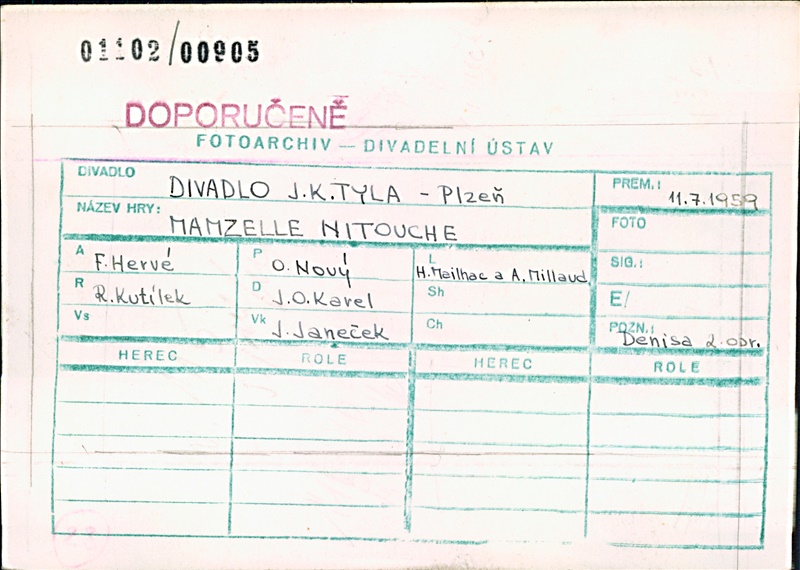 01102/00905
DOPORUČENĚ
FOTOARCHIV — DIVADELNÍ ÚSTAV
DIVADLO DIVADLO J.K.TYLA - Plzeň PREM.: 11.7.1959
NÁZEV HRY: MAMZELLE NITOUCHE FOTO
A F. Hervé P O. Nový L H. Meilhac a A. Millaud SIG.:
R R. Kutílek D J.O.Karel Sh E/
Vs Vk J. Janeček Ch POZN.: Denisa 2. odr.
HEREC ROLE HEREC ROLE